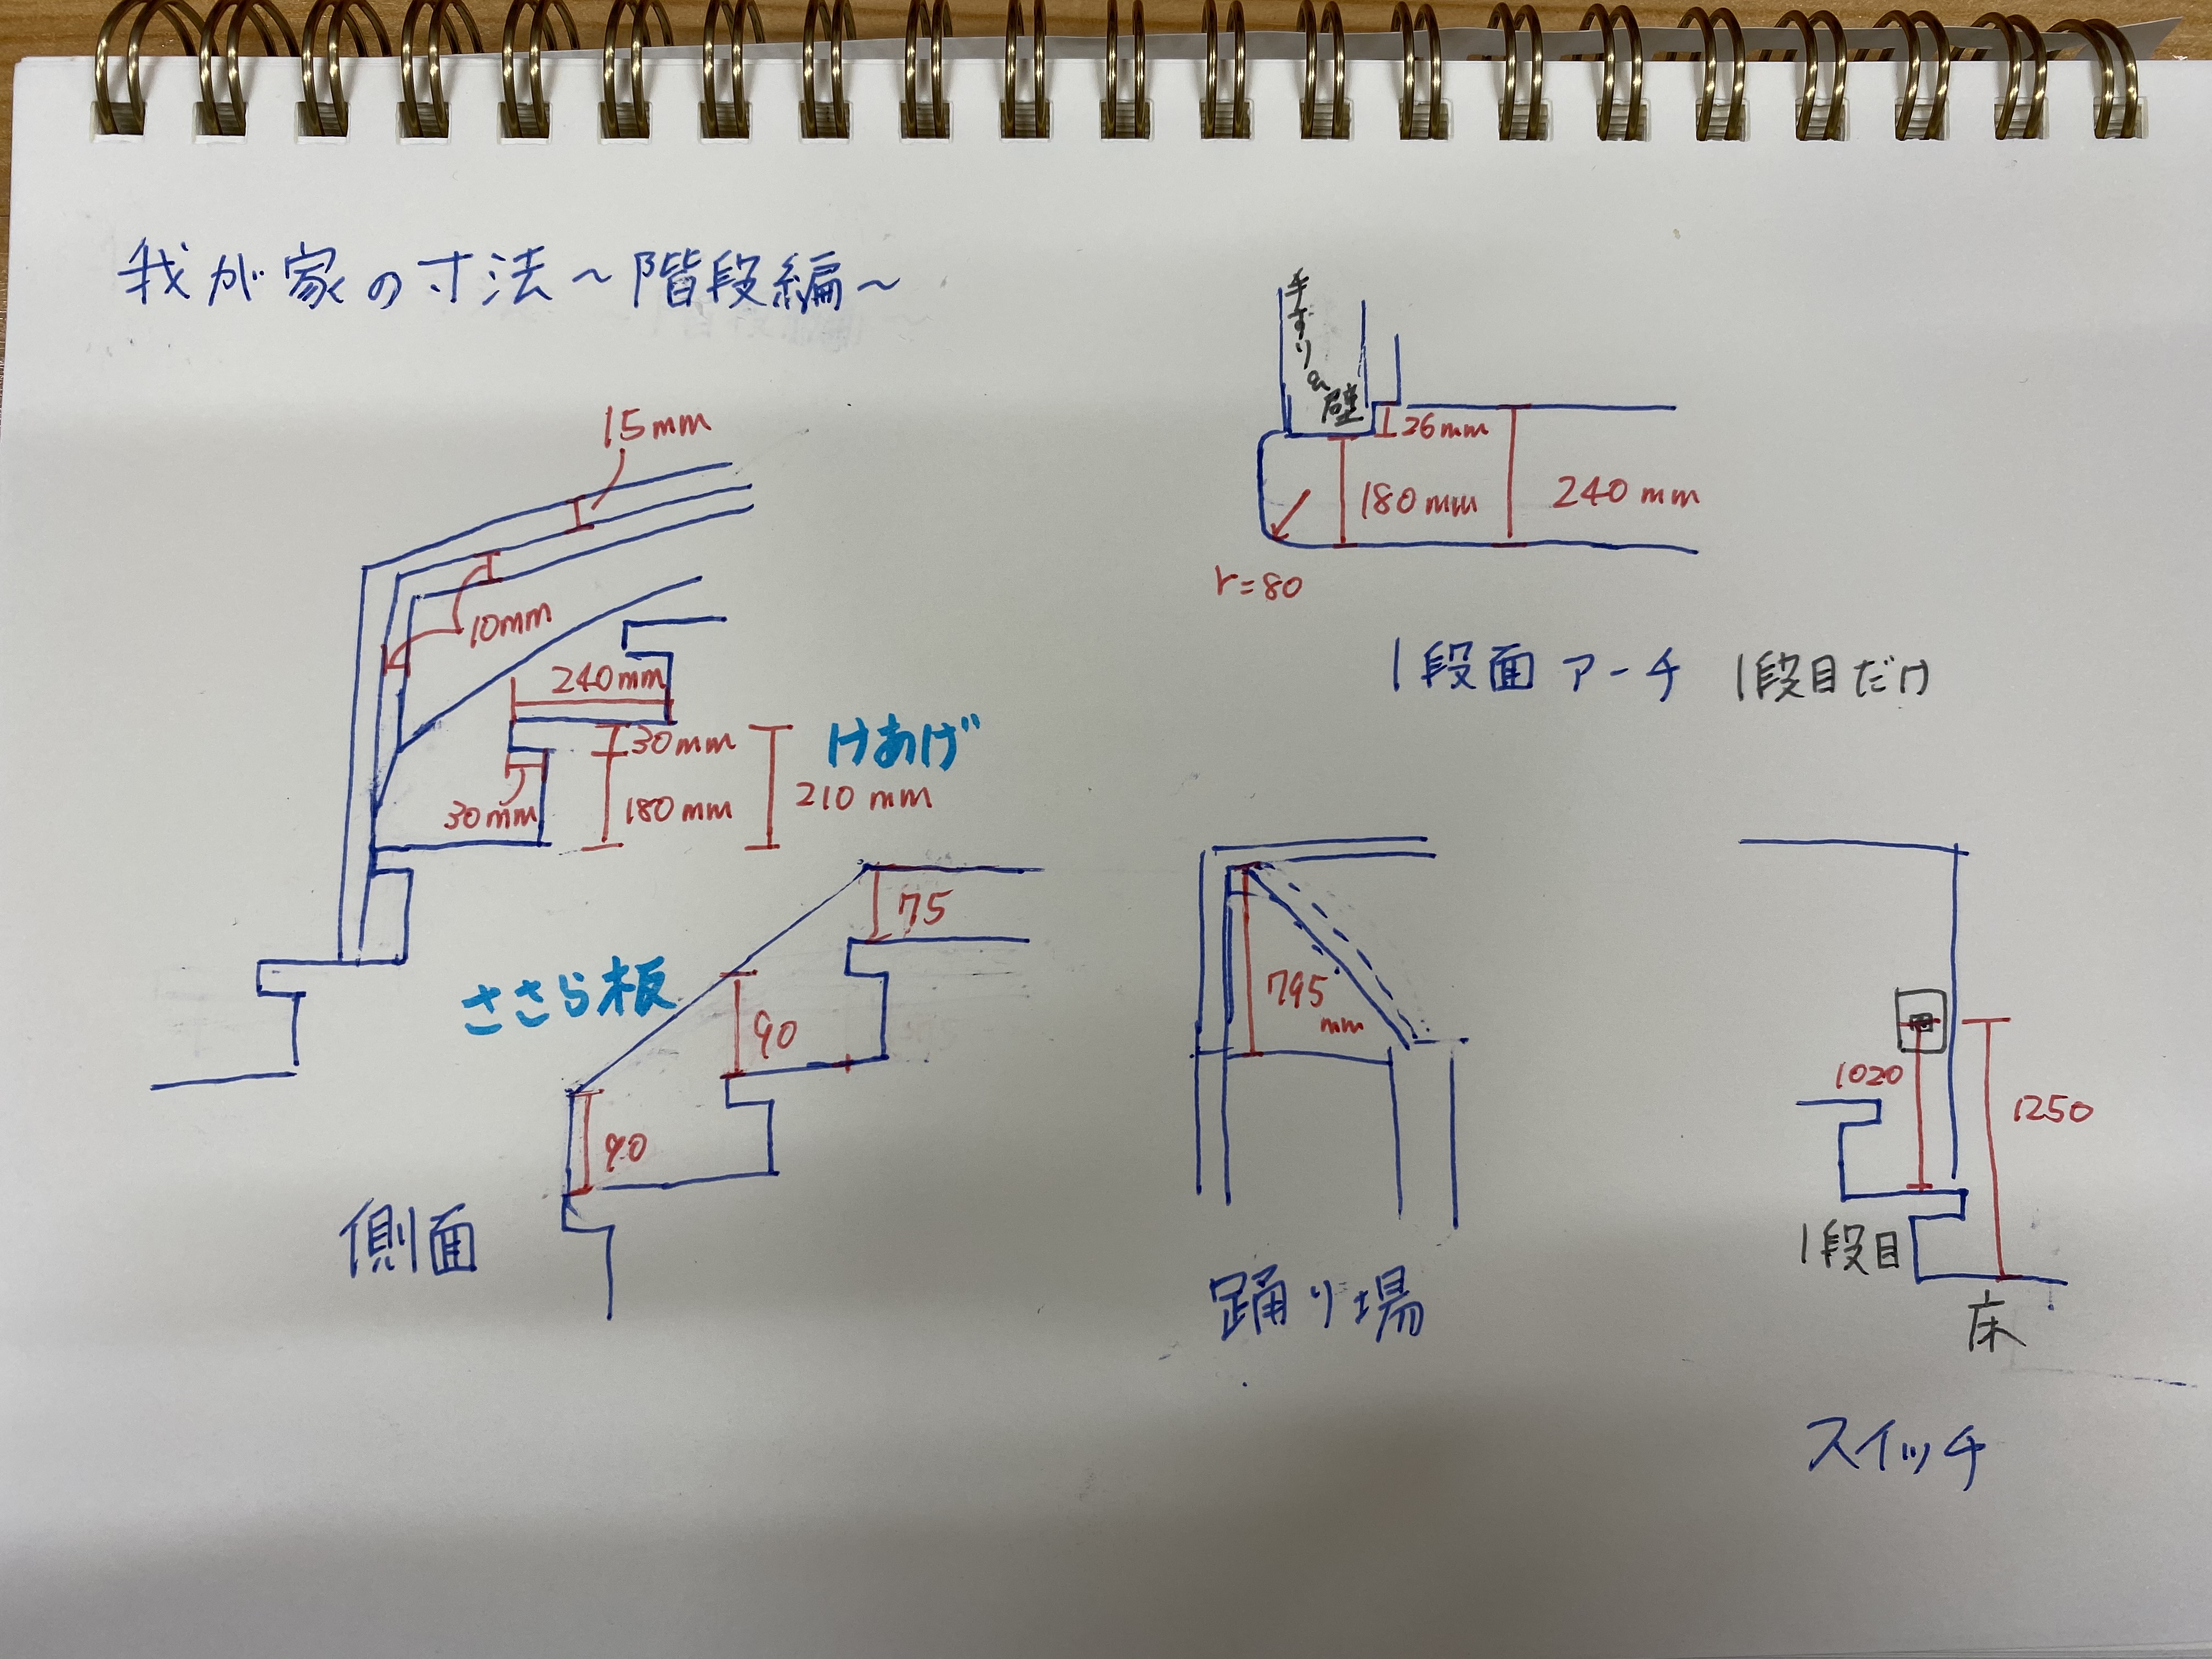 我が家の寸法～階段編～
15mm
10mm
240mm
30mm
けあげ
30mm
180mm
210mm
手すりの壁
26mm
180mm
240mm
r=80
1段面アーチ 1段目だけ
ささら板
75
90
90
側面
795
mm
踊り場
1020
1250
1段目
床
スイッチ